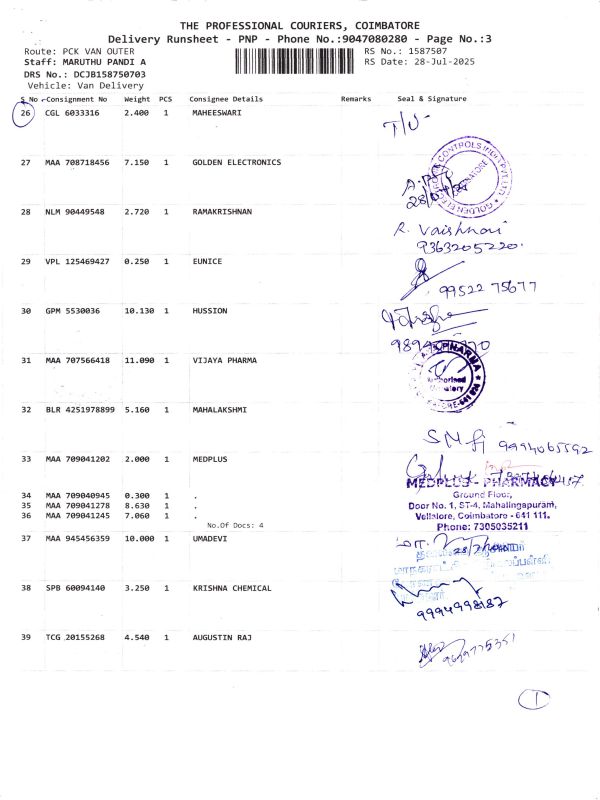 THE PROFESSIONAL COURIERS, COIMBATORE
Delivery Runsheet - PNP - Phone No.:9047080280 - Page No.:3
Route: PCK VAN OUTER RS No.: 1587507
Staff: MARUTHU PANDI A RS Date: 28-Jul-2025
DRS No.: DCJB158750703
Vehicle: Van Delivery
S.No Consignment No Weight PCS Consignee Details Remarks Seal & Signature
26 CGL 6033316 2.400 1 MAHEESWARI
27 MAA 708718456 7.150 1 GOLDEN ELECTRONICS
28 NLM 90449548 2.720 1 RAMAKRISHNAN
R. Vaishnavi
9363205220
29 VPL 125469427 0.250 1 EUNICE
99522 75677
30 GPM 5530036 10.130 1 HUSSION
31 MAA 707566418 11.090 1 VIJAYA PHARMA
32 BLR 4251978899 5.160 1 MAHALAKSHMI
9994065592
33 MAA 709041202 2.000 1 MEDPLUS
MEDPLUS - PHARMACY
34 MAA 709040945 0.300 1 .
Ground Floor,
35 MAA 709041278 8.630 1 .
Door No. 1, ST-4, Mahalingapuram,
36 MAA 709041245 7.060 1 .
Vellalore, Coimbatore - 641 111.
No.Of Docs: 4
Phone: 7305035211
37 MAA 945456359 10.000 1 UMADEVI
38 SPB 60094140 3.250 1 KRISHNA CHEMICAL
39 TCG 20155268 4.540 1 AUGUSTIN RAJ
1